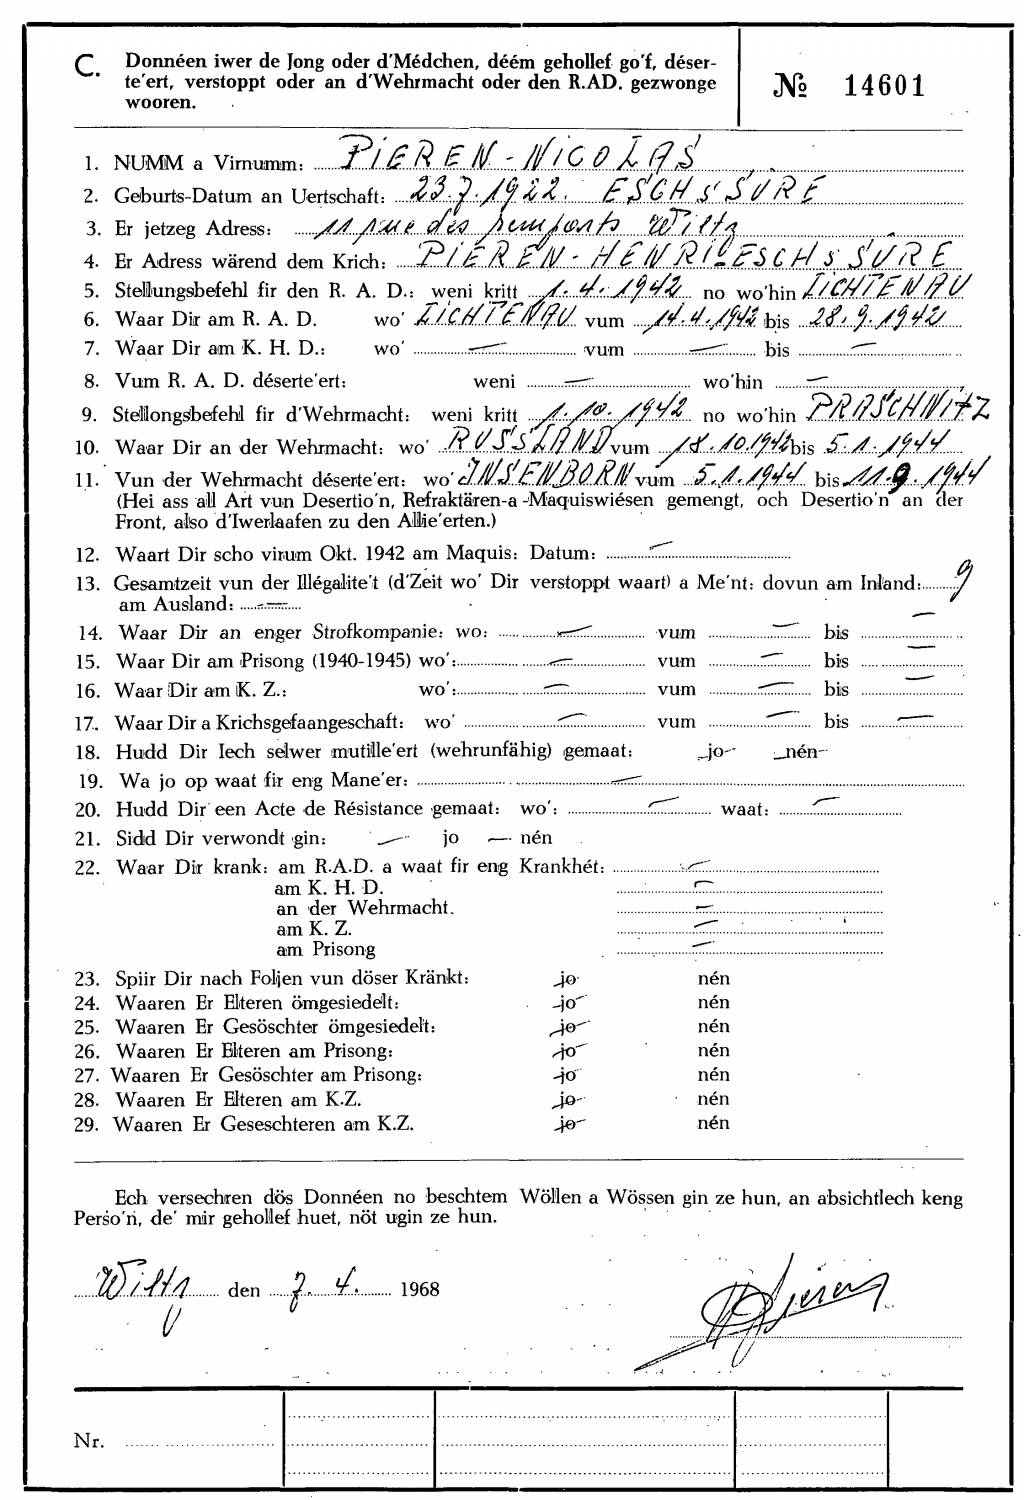 C. Donnéen iwer de Jong oder d'Médchen, déém gehollef go'f, déser-
te'ert, verstoppt oder an d'Wehrmacht oder den R.AD. gezwonge
wooren.
№ 14601
1. NUMM a Virnumm: PIEREN-NICOLAS
2. Geburts-Datum an Uertschaft: 23.7.1922. ESCH s/ SÛRE
3. Er jetzeg Adress: 11 rue des remparts Wiltz
4. Er Adress wärend dem Krich: PIEREN-HENRI ESCH s/ SÛRE
5. Stellungsbefehl fir den R. A. D.: weni kritt 1.4.1942 no wo'hin LICHTENAU
6. Waar Dir am R. A. D. wo' LICHTENAU vum 14.4.1942 bis 28.9.1942
7. Waar Dir am K. H. D.: wo' — vum — bis —
8. Vum R. A. D. déserte'ert: weni — wo'hin —
9. Stellongsbefehl fir d'Wehrmacht: weni kritt 1.10.1942 no wo'hin PRASCHNITZ
10. Waar Dir an der Wehrmacht: wo' RUSSLAND vum 18.10.1942 bis 5.1.1944
11. Vun der Wehrmacht déserte'ert: wo' INSENBORN vum 5.1.1944 bis 11.9.1944
(Hei ass all Art vun Desertio'n, Refraktären-a -Maquiswiésen gemengt, och Desertio'n an der
Front, also d'Iwerlaafen zu den Allie'erten.)
12. Waart Dir scho virum Okt. 1942 am Maquis: Datum: —
13. Gesamtzeit vun der Illégalite't (d'Zeit wo' Dir verstoppt waart) a Me'nt: dovun am Inland: 9
am Ausland: —
14. Waar Dir an enger Strofkompanie: wo: — vum — bis —
15. Waar Dir am Prisong (1940-1945) wo': — vum — bis —
16. Waar Dir am K. Z.: wo': — vum — bis —
17. Waar Dir a Krichsgefaangeschaft: wo' — vum — bis —
18. Hudd Dir Iech selwer mutille'ert (wehrunfähig) gemaat: jo nén
19. Wa jo op waat fir eng Mane'er: —
20. Hudd Dir een Acte de Résistance gemaat: wo': — waat: —
21. Sidd Dir verwondt gin: — jo — nén
22. Waar Dir krank: am R.A.D. a waat fir eng Krankhét: —
am K. H. D. —
an der Wehrmacht. —
am K. Z. —
am Prisong —
23. Spiir Dir nach Foljen vun döser Kränkt: jo nén
24. Waaren Er Elteren ömgesiedelt: jo nén
25. Waaren Er Gesöschter ömgesiedelt: jo nén
26. Waaren Er Elteren am Prisong: jo nén
27. Waaren Er Gesöschter am Prisong: jo nén
28. Waaren Er Elteren am K.Z. jo nén
29. Waaren Er Geseschteren am K.Z. jo nén
Ech versechren dös Donnéen no beschtem Wöllen a Wössen gin ze hun, an absichtlech keng
Perso'n, de' mir gehollef huet, nöt ugin ze hun.
Wiltz den 7. 4. 1968
Pieren
Nr.